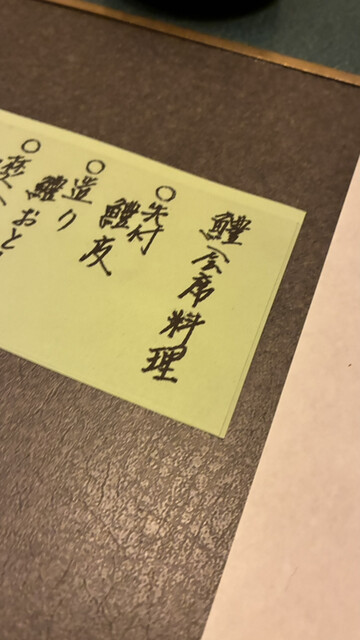 鱧会席料理
○先付
鱧皮
○造り
鱧おと
○